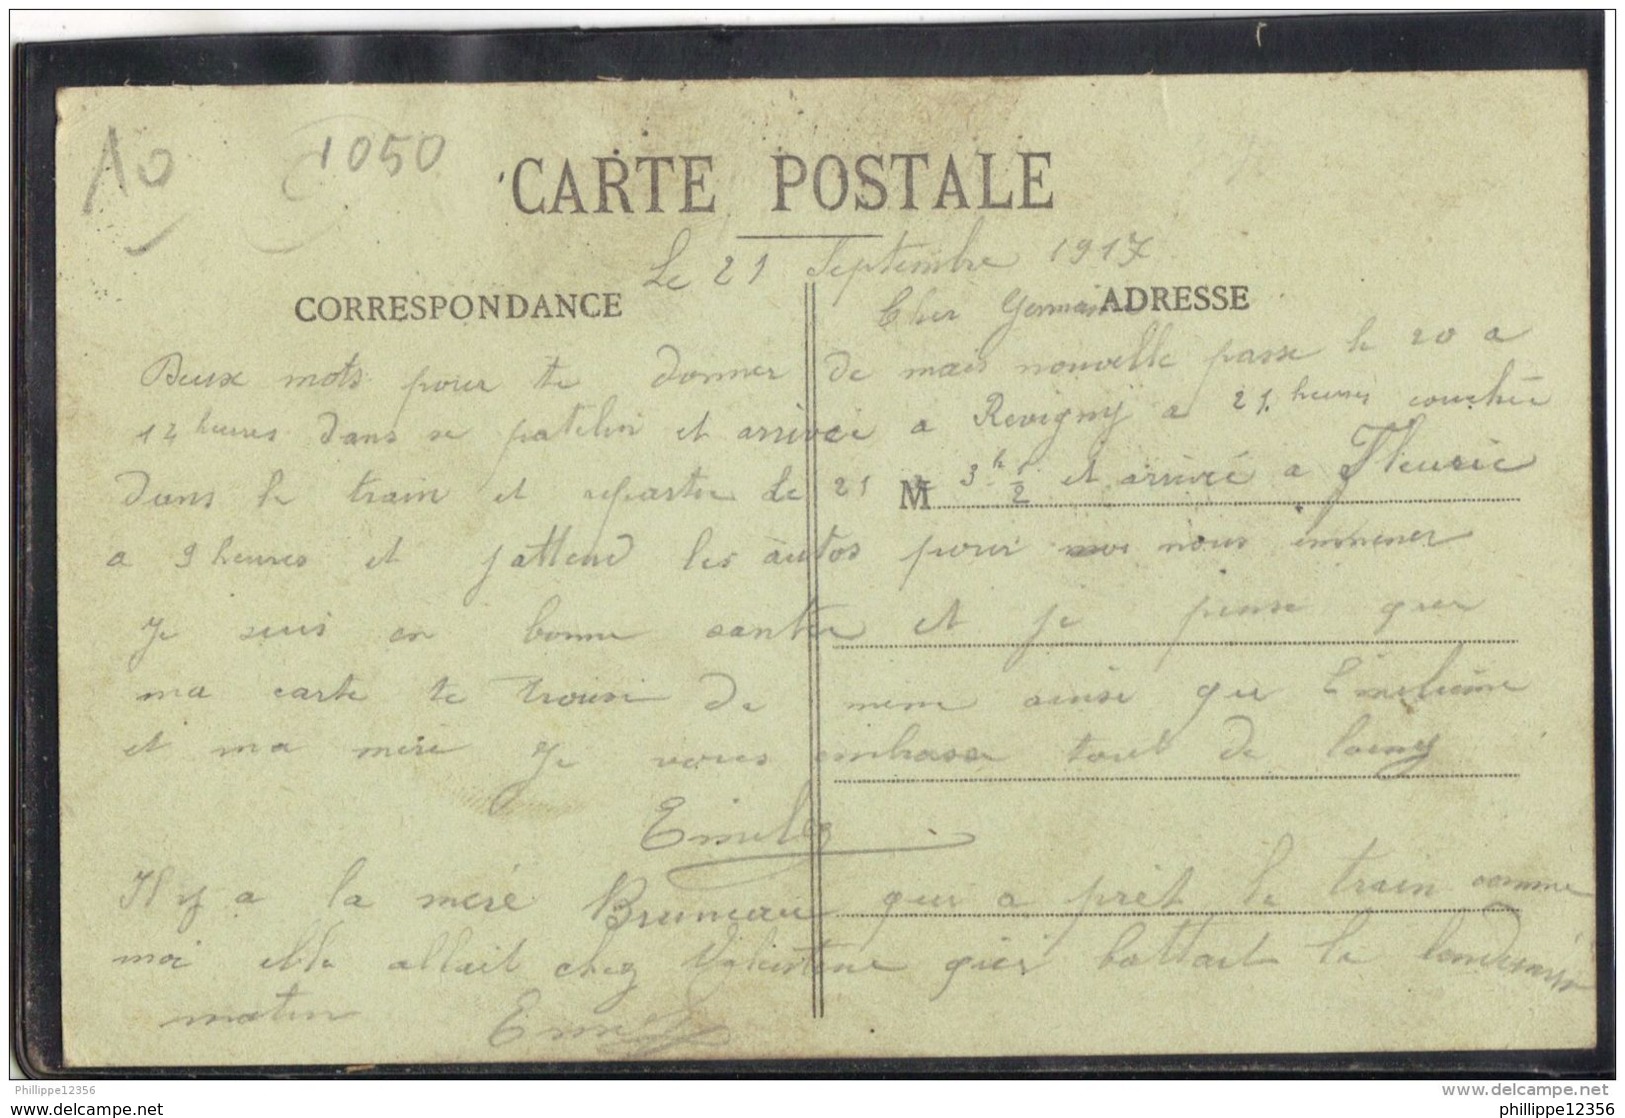 10
1050
CARTE POSTALE
Le 21 Septembre 1917
CORRESPONDANCE
ADRESSE
Cher Germaine
Deux mots pour te donner de mais nouvelle passe le 20 a
12 heures dans se patelin et arrivée a Revigny a 21 heures couchée
dans le train et repartie le 21 a 3 h 1/2 et arrivé a Fleurie
M
a 9 heures et jattend les autos pour nous emmener
Je suis en bonne santer et je pense quer
ma carte te trouve de meme ainsi que Emilienne
et ma mère Je vous embrasse tout de loing
Emile
Il y a la meré Bruneau qui a prêt le train comme
moi elle allait chez battait la
matin Emile
Phillippe12356
www.delcampe.net
philippe12356
philippe12356